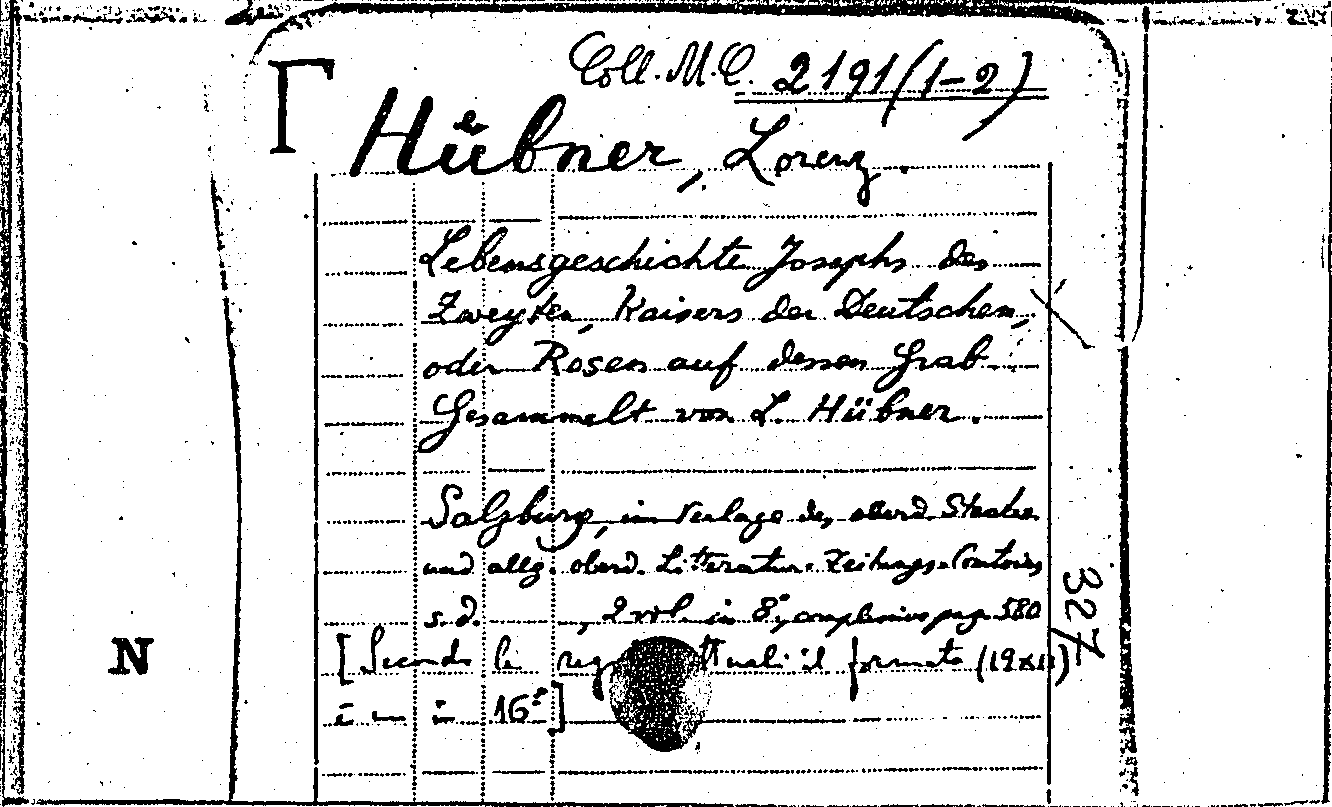 Coll. M.C. 2191 (1-2)
Hübner, Lorenz.
Lebensgeschichte Josephs des
Zweyten, Kaisers der Deutschen,
oder Rosen auf dessen Grab.
Gesammelt von L. Hübner.
Salzburg, im Verlage der oberd. Staats
und allg. oberd. Litteratur-Zeitungs-Contoirs
s.d. , 2 vol. in 8°, complessive pag. 580
327
[Secondo le attuali il formato (19x11)
è un in 16°]
N